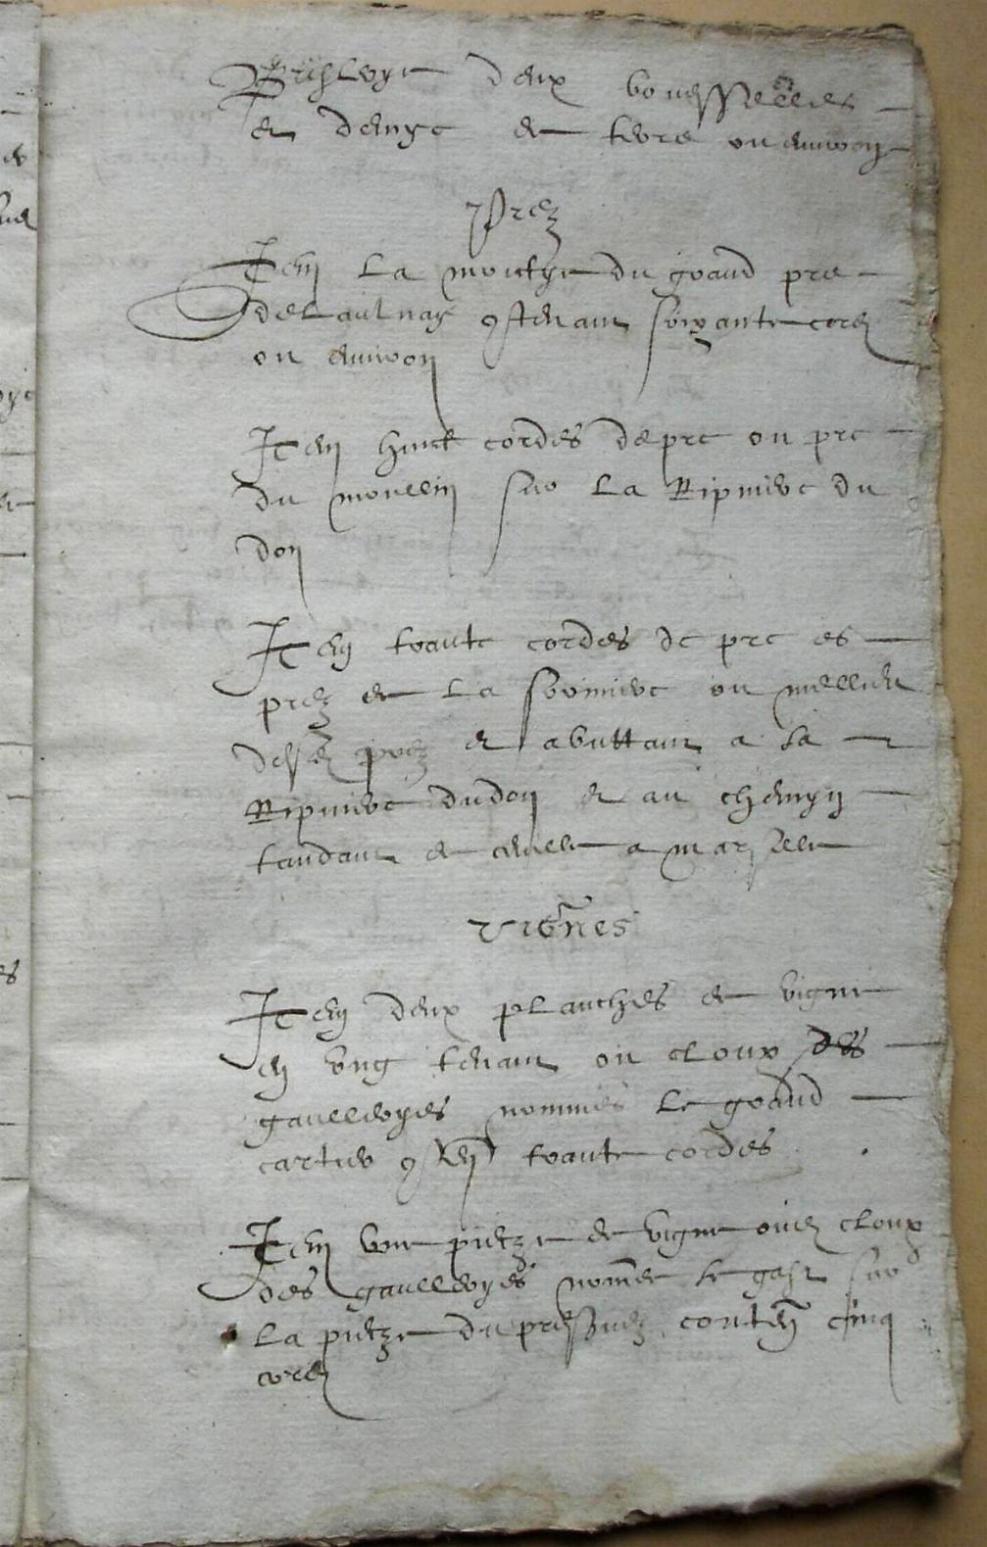 deux bouessellees
et demye de terre ou environ
Prez
Item la moictye du grand pre
de Laulnay contenant soixante cordes
ou environ
Item huict cordes de pre ou pre
du moullin sur la Ripviere du
don
Item trante cordes de pre es
prez de la ou millieu
desd prez et abuttant a la
Ripviere du don et au chemyn
tandant de a
Vignes
Item deux planches de vigne
en ung tenant ou cloux des
gaulleryes nommes le grand
cartier conten trante cordes
Item une pietze de vigne oud cloux
des gaulleryes nommee le gast sur
la pietze du conten cinq
cordes